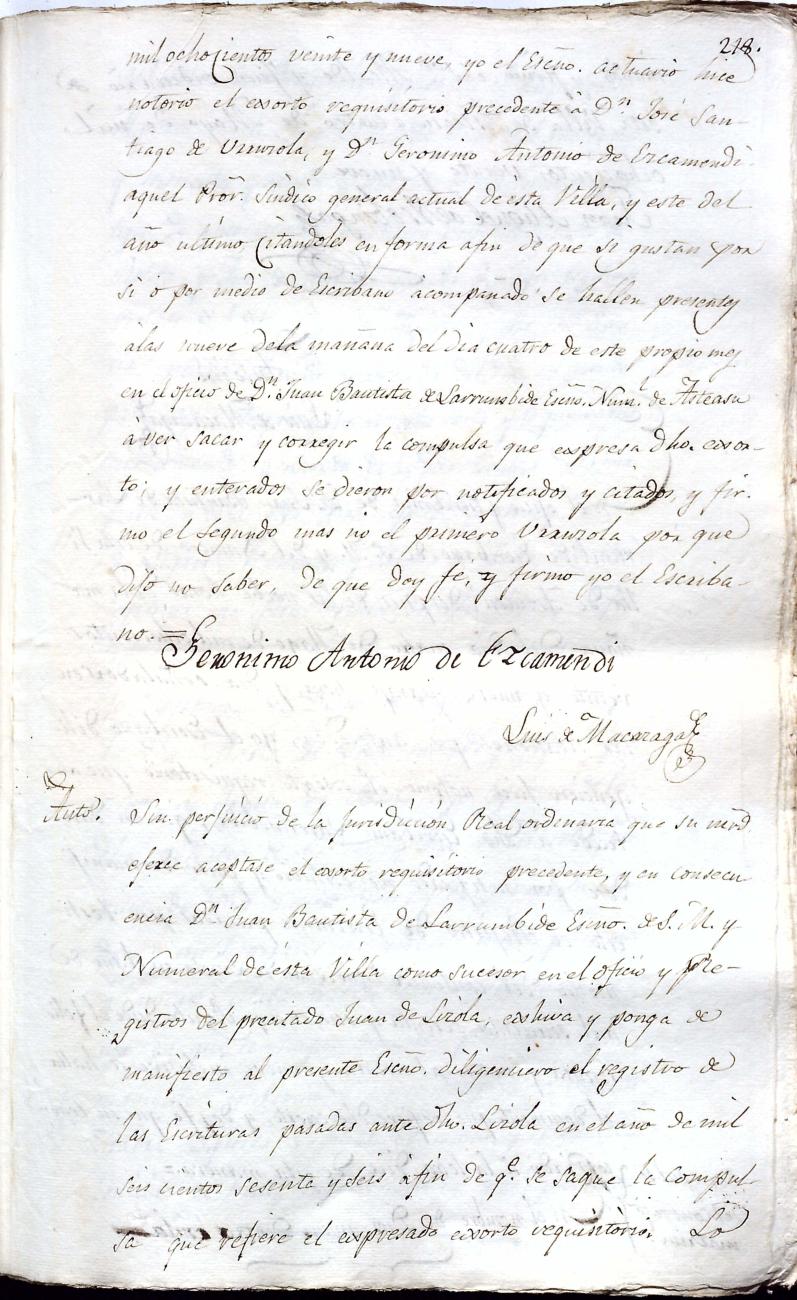 218.
mil ochocientos veinte y nueve, yo el Esno. actuario hice
notorio el exorto requisitorio precedente à Dn. José San-
tiago de Urruzola, y Dn. Geronimo Antonio de Ezcamendi
aquel Pror. Sindico general actual de ésta Villa, y este del
año ultimo citandoles en forma afin de que si gustan por
si ó por medio de Escribano acompañado se hallen presentes
àlas nueve dela mañana del dia cuatro de este propio mes
en el oficio de Dn. Juan Bautista de Larrumbide Esno. Numl. de Asteasu
à ver sacar y corregir la compulsa que expresa dho. exor-
to; y enterados se dieron por notificados y citados, y fir-
mo el segundo mas no el primero Urruzola por que
dijo no saber, de que doy fé, y firmo yo el Escriba-
no. =
Geronimo Antonio de Ezcamendi
Luis de Macazaga
Auto. Sin perjuicio de la Jurisdicion Real ordinaria que su mrd.
ejerce aceptase el exorto requisitorio precedente, y en consecu
encia Dn. Juan Bautista de Larrumbide Esno. de S. M. y
Numeral de ésta Villa como sucesor en el oficio y Re-
gistros del precitado Juan de Lizola, exhiva y ponga de
manifiesto al presente Esno. diligenciero el registro de
las Escrituras pasadas ante dho. Lizola en el año de mil
seis cientos sesenta y seis àfin de qe. se saque la compul
sa que refiere el expresado exorto requisitorio. Lo